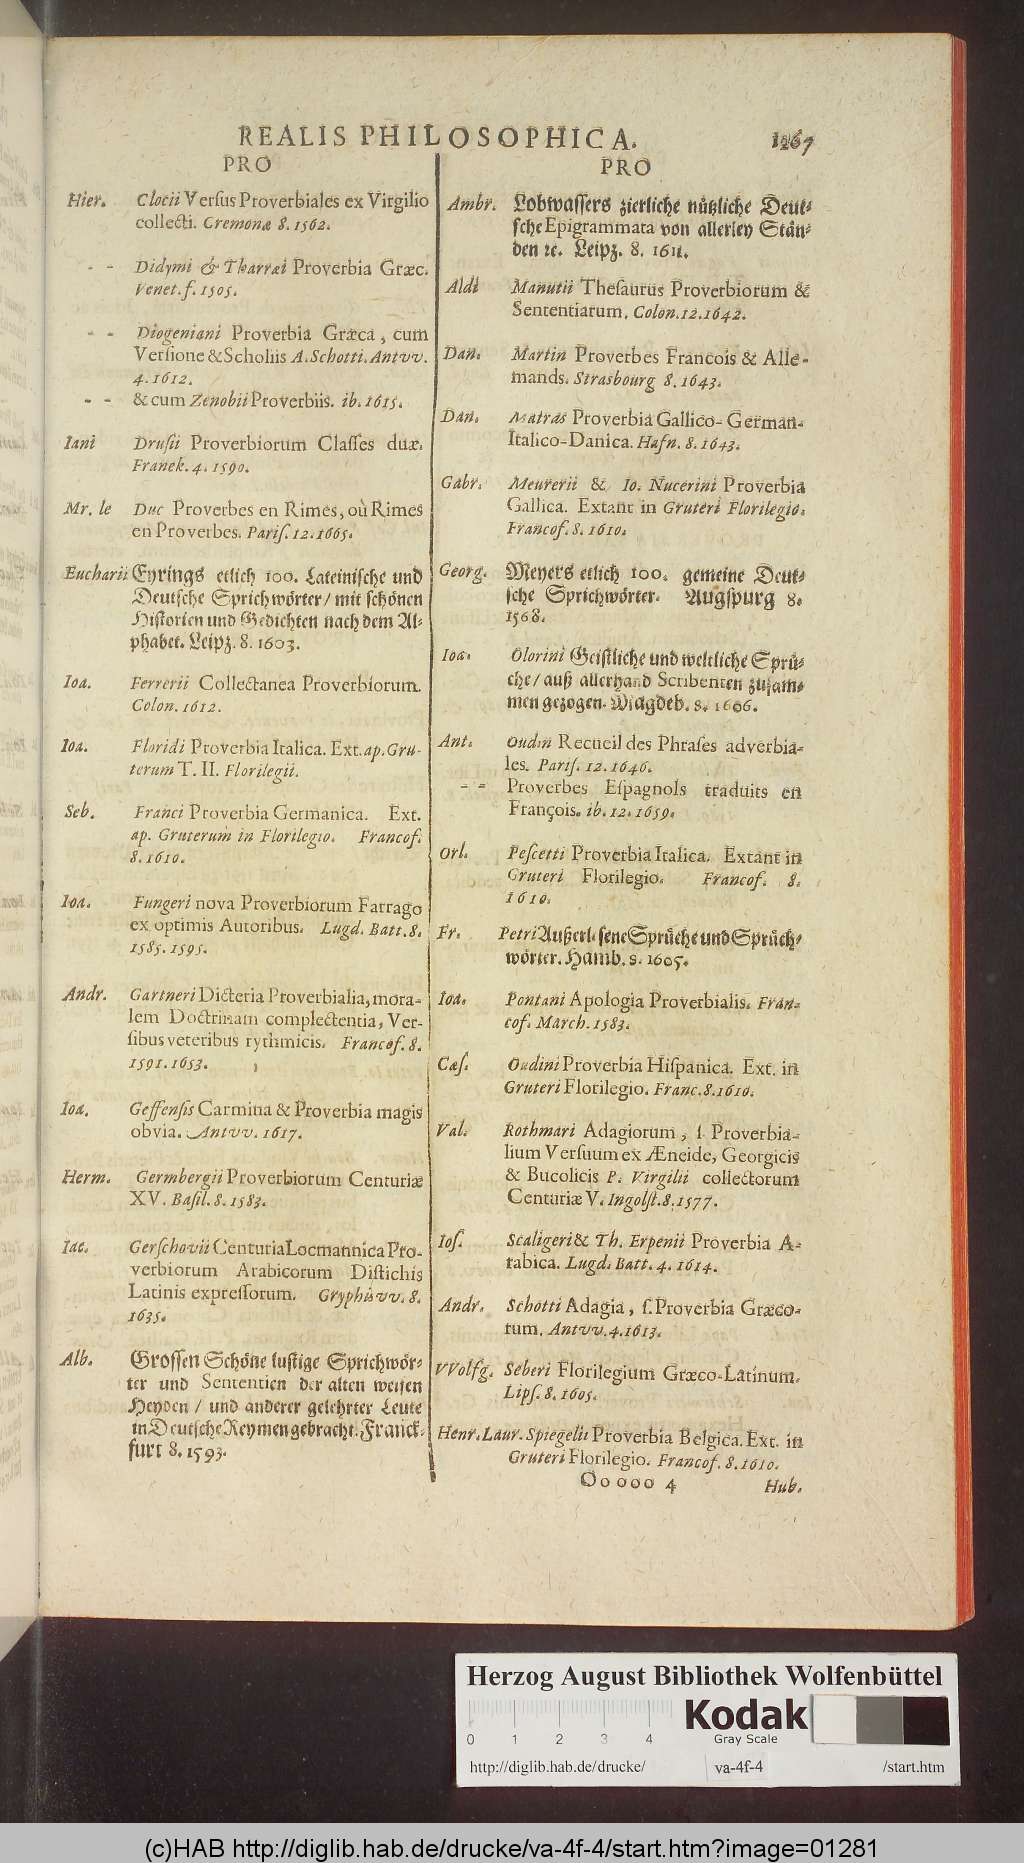 REALIS PHILOSOPHICA.
PRO
Hier. Clocii Versus Proverbiales ex Virgilio
collecti. Cremonæ 8. 1562.
- - Didymi & Tharræi Proverbia Græc.
Venet. f. 1505.
- - Diogeniani Proverbia Græca, cum
Versione & Scholiis A. Schotti. Antvv.
4. 1612.
- - & cum Zenobii Proverbiis. ib. 1615.
Iani Drusii Proverbiorum Classes duæ.
Franek. 4. 1590.
Mr. le Duc Proverbes en Rimes, où Rimes
en Proverbes. Paris. 12. 1665.
Eucharii Eyrings etlich 100. Lateinische und
Deutsche Sprichwörter / mit schönen
Historien und Gedichten nach dem Al-
phabet. Leipz. 8. 1603.
Ioa. Ferrerii Collectanea Proverbiorum.
Colon. 1612.
Ioa. Floridi Proverbia Italica. Ext. ap. Gru-
terum T. II. Florilegii.
Seb. Franci Proverbia Germanica. Ext.
ap. Gruterum in Florilegio. Francof.
8. 1610.
Ioa. Fungeri nova Proverbiorum Farrago
ex optimis Autoribus. Lugd. Batt. 8.
1585. 1595.
Andr. Gartneri Dicteria Proverbialia, mora-
lem Doctrinam complectentia, Ver-
sibus veteribus rythmicis. Francof. 8.
1591. 1653.
Ioa. Geffensis Carmina & Proverbia magis
obvia. Antvv. 1617.
Herm. Germbergii Proverbiorum Centuriæ
XV. Basil. 8. 1583.
Iac. Gerschovii Centuria Locmannica Pro-
verbiorum Arabicorum Distichis
Latinis expressorum. Gryphisvv. 8.
1635.
Alb. Grossen Schöne lustige Sprichwör-
ter und Sententien der alten weisen
Heyden / und anderer gelehrter Leute
in Deutsche Reymen gebracht. Franck-
furt 8. 1593.
PRO
Ambr. Lobwassers zierliche nützliche Deut-
sche Epigrammata von allerley Stän-
den ꝛc. Leipz. 8. 1611.
Aldi Manutii Thesaurus Proverbiorum &
Sententiarum. Colon. 12. 1642.
Dan. Martin Proverbes Francois & Alle-
mands. Strasbourg 8. 1643.
Dan. Matras Proverbia Gallico-German-
Italico-Danica. Hafn. 8. 1643.
Gabr. Meurerii & Io. Nucerini Proverbia
Gallica. Extant in Gruteri Florilegio.
Francof. 8. 1610.
Georg. Meyers etlich 100. gemeine Deut-
sche Sprichwörter. Augspurg 8.
1568.
Ioa. Olorini Geistliche und weltliche Sprü-
che / auß allerhand Scribenten zusam-
men gezogen. Magdeb. 8. 1606.
Ant. Oudin Recueil des Phrases adverbia-
les. Paris. 12. 1646.
- - Proverbes Espagnols traduits en
François. ib. 12. 1659.
Orl. Pescetti Proverbia Italica. Extant in
Gruteri Florilegio. Francof. 8.
1610.
Fr. Petri Außerlesene Sprüche und Sprüch-
wörter. Hamb. 8. 1605.
Ioa. Pontani Apologia Proverbialis. Fran-
cof. March. 1583.
Cæs. Oudini Proverbia Hispanica. Ext. in
Gruteri Florilegio. Franc. 8. 1610.
Val. Rothmari Adagiorum, s. Proverbia-
lium Versuum ex Æneide, Georgicis
& Bucolicis P. Virgilii collectorum
Centuriæ V. Ingolst. 8. 1577.
Ios. Scaligeri & Th. Erpenii Proverbia A-
rabica. Lugd. Batt. 4. 1614.
Andr. Schotti Adagia, s. Proverbia Græco-
rum. Antvv. 4. 1613.
VVolfg. Seberi Florilegium Græco-Latinum.
Lips. 8. 1605.
Henr. Laur. Spiegelii Proverbia Belgica. Ext. in
Gruteri Florilegio. Francof. 8. 1610.
Ooooo 4 Hub.
Herzog August Bibliothek Wolfenbüttel
0 1 2 3 4
Kodak
Gray Scale
http://diglib.hab.de/drucke/ va-4f-4 /start.htm
(c)HAB http://diglib.hab.de/drucke/va-4f-4/start.htm?image=01281